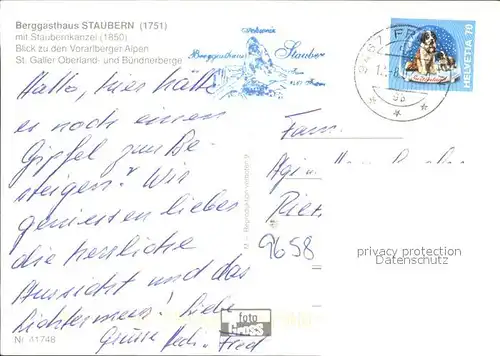 Berggasthaus STAUBERN (1751)
mit Staubernkanzel (1850)
Blick zu den Vorarlberger Alpen
St. Galler Oberland- und Bündnerberge
Schweiz
Berggasthaus Stauber
9467 FR
HELVETIA 70
Hallo, hier hätte
es noch einen
Gipfel zum Be-
steigen? Wir
geniessen lieber
die herrliche
Aussicht und das
Lichtermeer! Liebe
Grüsse Hedi + Fred
Fam.
9658
privacy protection
Datenschutz
foto
Gross
Nr. 41748